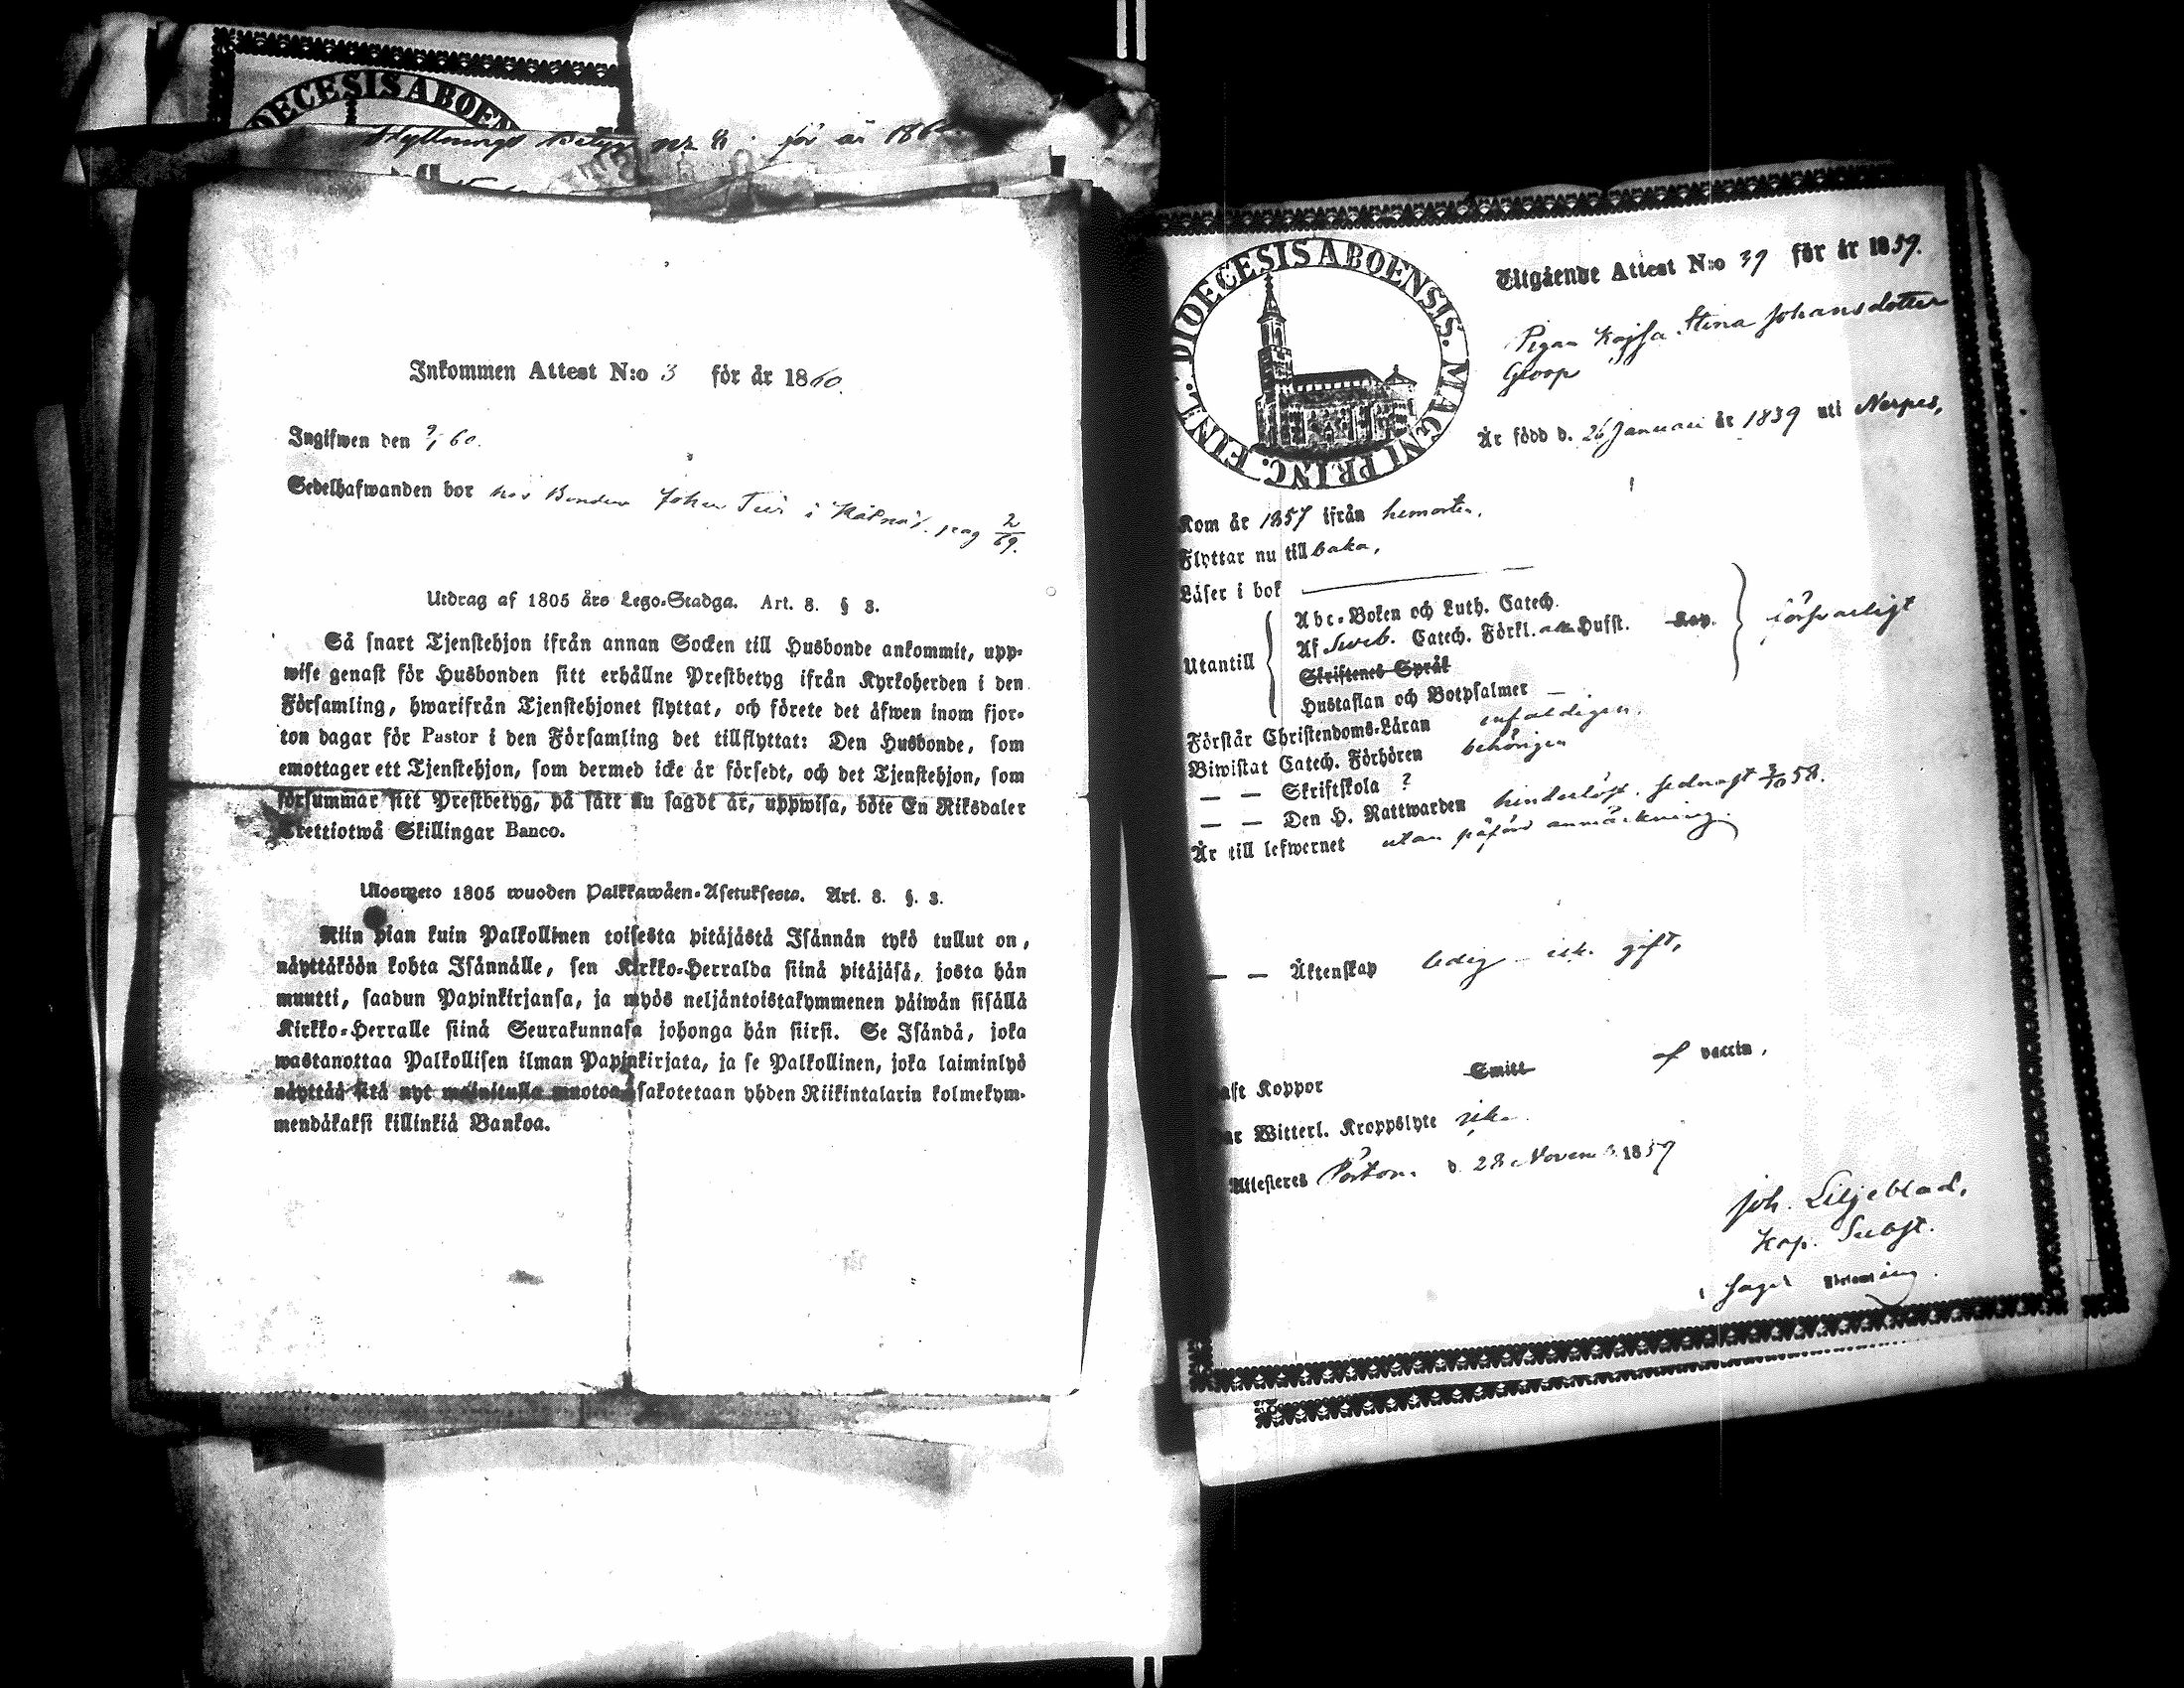 DIOECESIS ABOEN
Flyttnings Betyg för år 186
Inkommen Attest N:o 3 för år 1860.
Ingifwen den 9/1 60.
Sedelhafwanden bor hos Bonden Johan i pag 2/69.
Utdrag af 1805 års Lego-Stadga. Art. 8. § 3.
Så snart Tjenstehjon ifrån annan Socken till Husbonde ankommit, upp-
wise genast för Husbonden sitt erhållne Prestbetyg ifrån Kyrkoherden i den
Församling, hwarifrån Tjenstehjonet flyttat, och förete det äfwen inom fjor-
ton dagar för Pastor i den Församling det tillflyttat: Den Husbonde, som
emottager ett Tjenstehjon, som dermed icke är försedt, och det Tjenstehjon, som
försummar sitt Prestbetyg, på sätt nu sagdt är, uppwisa, böte En Riksdaler
trettiotwå Skillingar Banco.
Ulosweto 1805 wuoden Palkkawäen-Asetuksesta. Art. 8. §. 3.
Niin pian kuin Palkollinen toisesta pitäjästä Isännän tykö tullut on,
näyttäköön kohta Isännälle, sen Kirkko-Herralda siinä pitäjäsä, josta hän
muutti, saadun Papinkirjansa, ja myös neljäntoistakymmenen päiwän sisällä
Kirkko-Herralle siinä Seurakunnasa johonga hän siirsi. Se Isändä, joka
wastanottaa Palkollisen ilman Papinkirjata, ja se Palkollinen, joka laiminlyö
näyttää sitä nyt mainitulla muotoa, sakotetaan yhden Riikintalarin kolmekym-
mendäkaksi killinkiä Bankoa.
DIOECESIS ABOENSIS. MAGNI PRINC. FINL.
Utgående Attest N:o 39 för år 1859.
Pigan Kajsa Stina Johansdotter
Groop
Är född d. 26 Januari år 1839 uti Nerpes,
Kom år 1857 ifrån hemorten,
Flyttar nu tillbaka,
Läser i bok
Abc-Boken och Luth. Catech.
Utantill Af Sweb. Catech. Förkl. alla Hufst. Kap. försvarligt
Skriftenes Språk
Hustaflan och Botpsalmer —
Förstår Christendoms-Läran enfaldigen.
Biwistat Catech. Förhören behörigen
— — Skriftskola ?
— — Den H. Nattwarden hinderlöst. sednast 3/10 58.
Är till lefwernet utan påförd anmärkning.
— — Äktenskap ledig icke gift,
Haft Koppor Smitt af vaccin,
Har Witterl. Kroppslyte icke
Attesteres Pörtom d. 28 Novemb. 1859
Joh. Liljeblad,
Kap. Subst.
i sagde Församling.